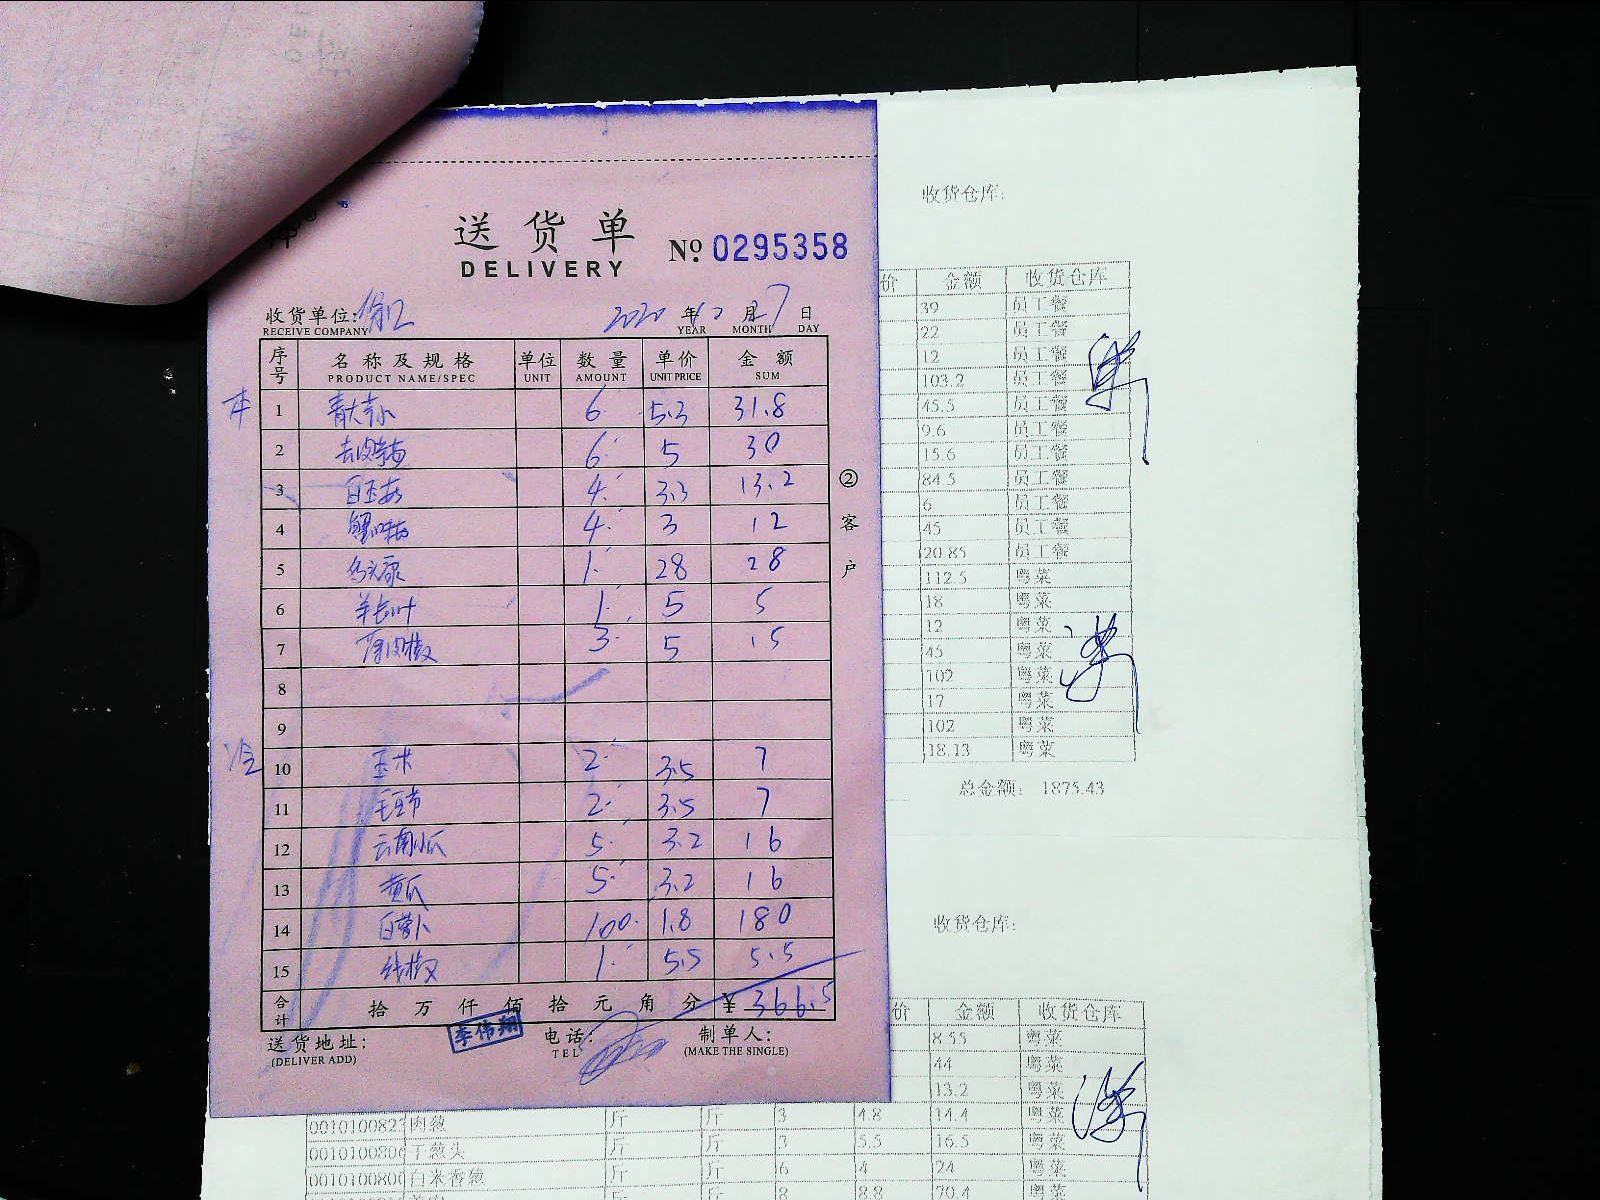 送货单
DELIVERY
№ 0295358
收货单位:
RECEIVE COMPANY
2020 年 12 月 7 日
YEAR MONTH DAY
序号 名称及规格 单位 数量 单价 金额
PRODUCT NAME/SPEC UNIT AMOUNT UNIT PRICE SUM
本 1 6 5.3 31.8
2 6 5 30
3 白玉菇 4 3.3 13.2
4 蟹味菇 4 3 12
5 1 28 28
6 1 5 5
7 薄皮椒 3 5 15
8
9
冷 10 玉米 2 3.5 7
11 毛豆节 2 3.5 7
12 云南小瓜 5 3.2 16
13 黄瓜 5 3.2 16
14 白萝卜 100 1.8 180
15 线椒 1 5.5 5.5
合计 拾 万 仟 佰 拾 元 角 分 ¥ 366.5
送货地址: 李伟翔 电话: 制单人:
(DELIVER ADD) TEL (MAKE THE SINGLE)
② 客户
收货仓库:
价 金额 收货仓库
39 员工餐
22 员工餐
12 员工餐
103.2 员工餐
45.5 员工餐
9.6 员工餐
15.6 员工餐
84.5 员工餐
6 员工餐
45 员工餐
20.85 员工餐
112.5 粤菜
18 粤菜
12 粤菜
45 粤菜
102 粤菜
17 粤菜
102 粤菜
18.13 粤菜
总金额: 1875.43
收货仓库:
价 金额 收货仓库
8.55 粤菜
44 粤菜
13.2 粤菜
001010082 肉葱 斤 斤 3 4.8 14.4 粤菜
001010080 干葱头 斤 斤 3 5.5 16.5 粤菜
001010080 白米香葱 斤 斤 6 4 24 粤菜
斤 斤 8 8.8 70.4 粤菜